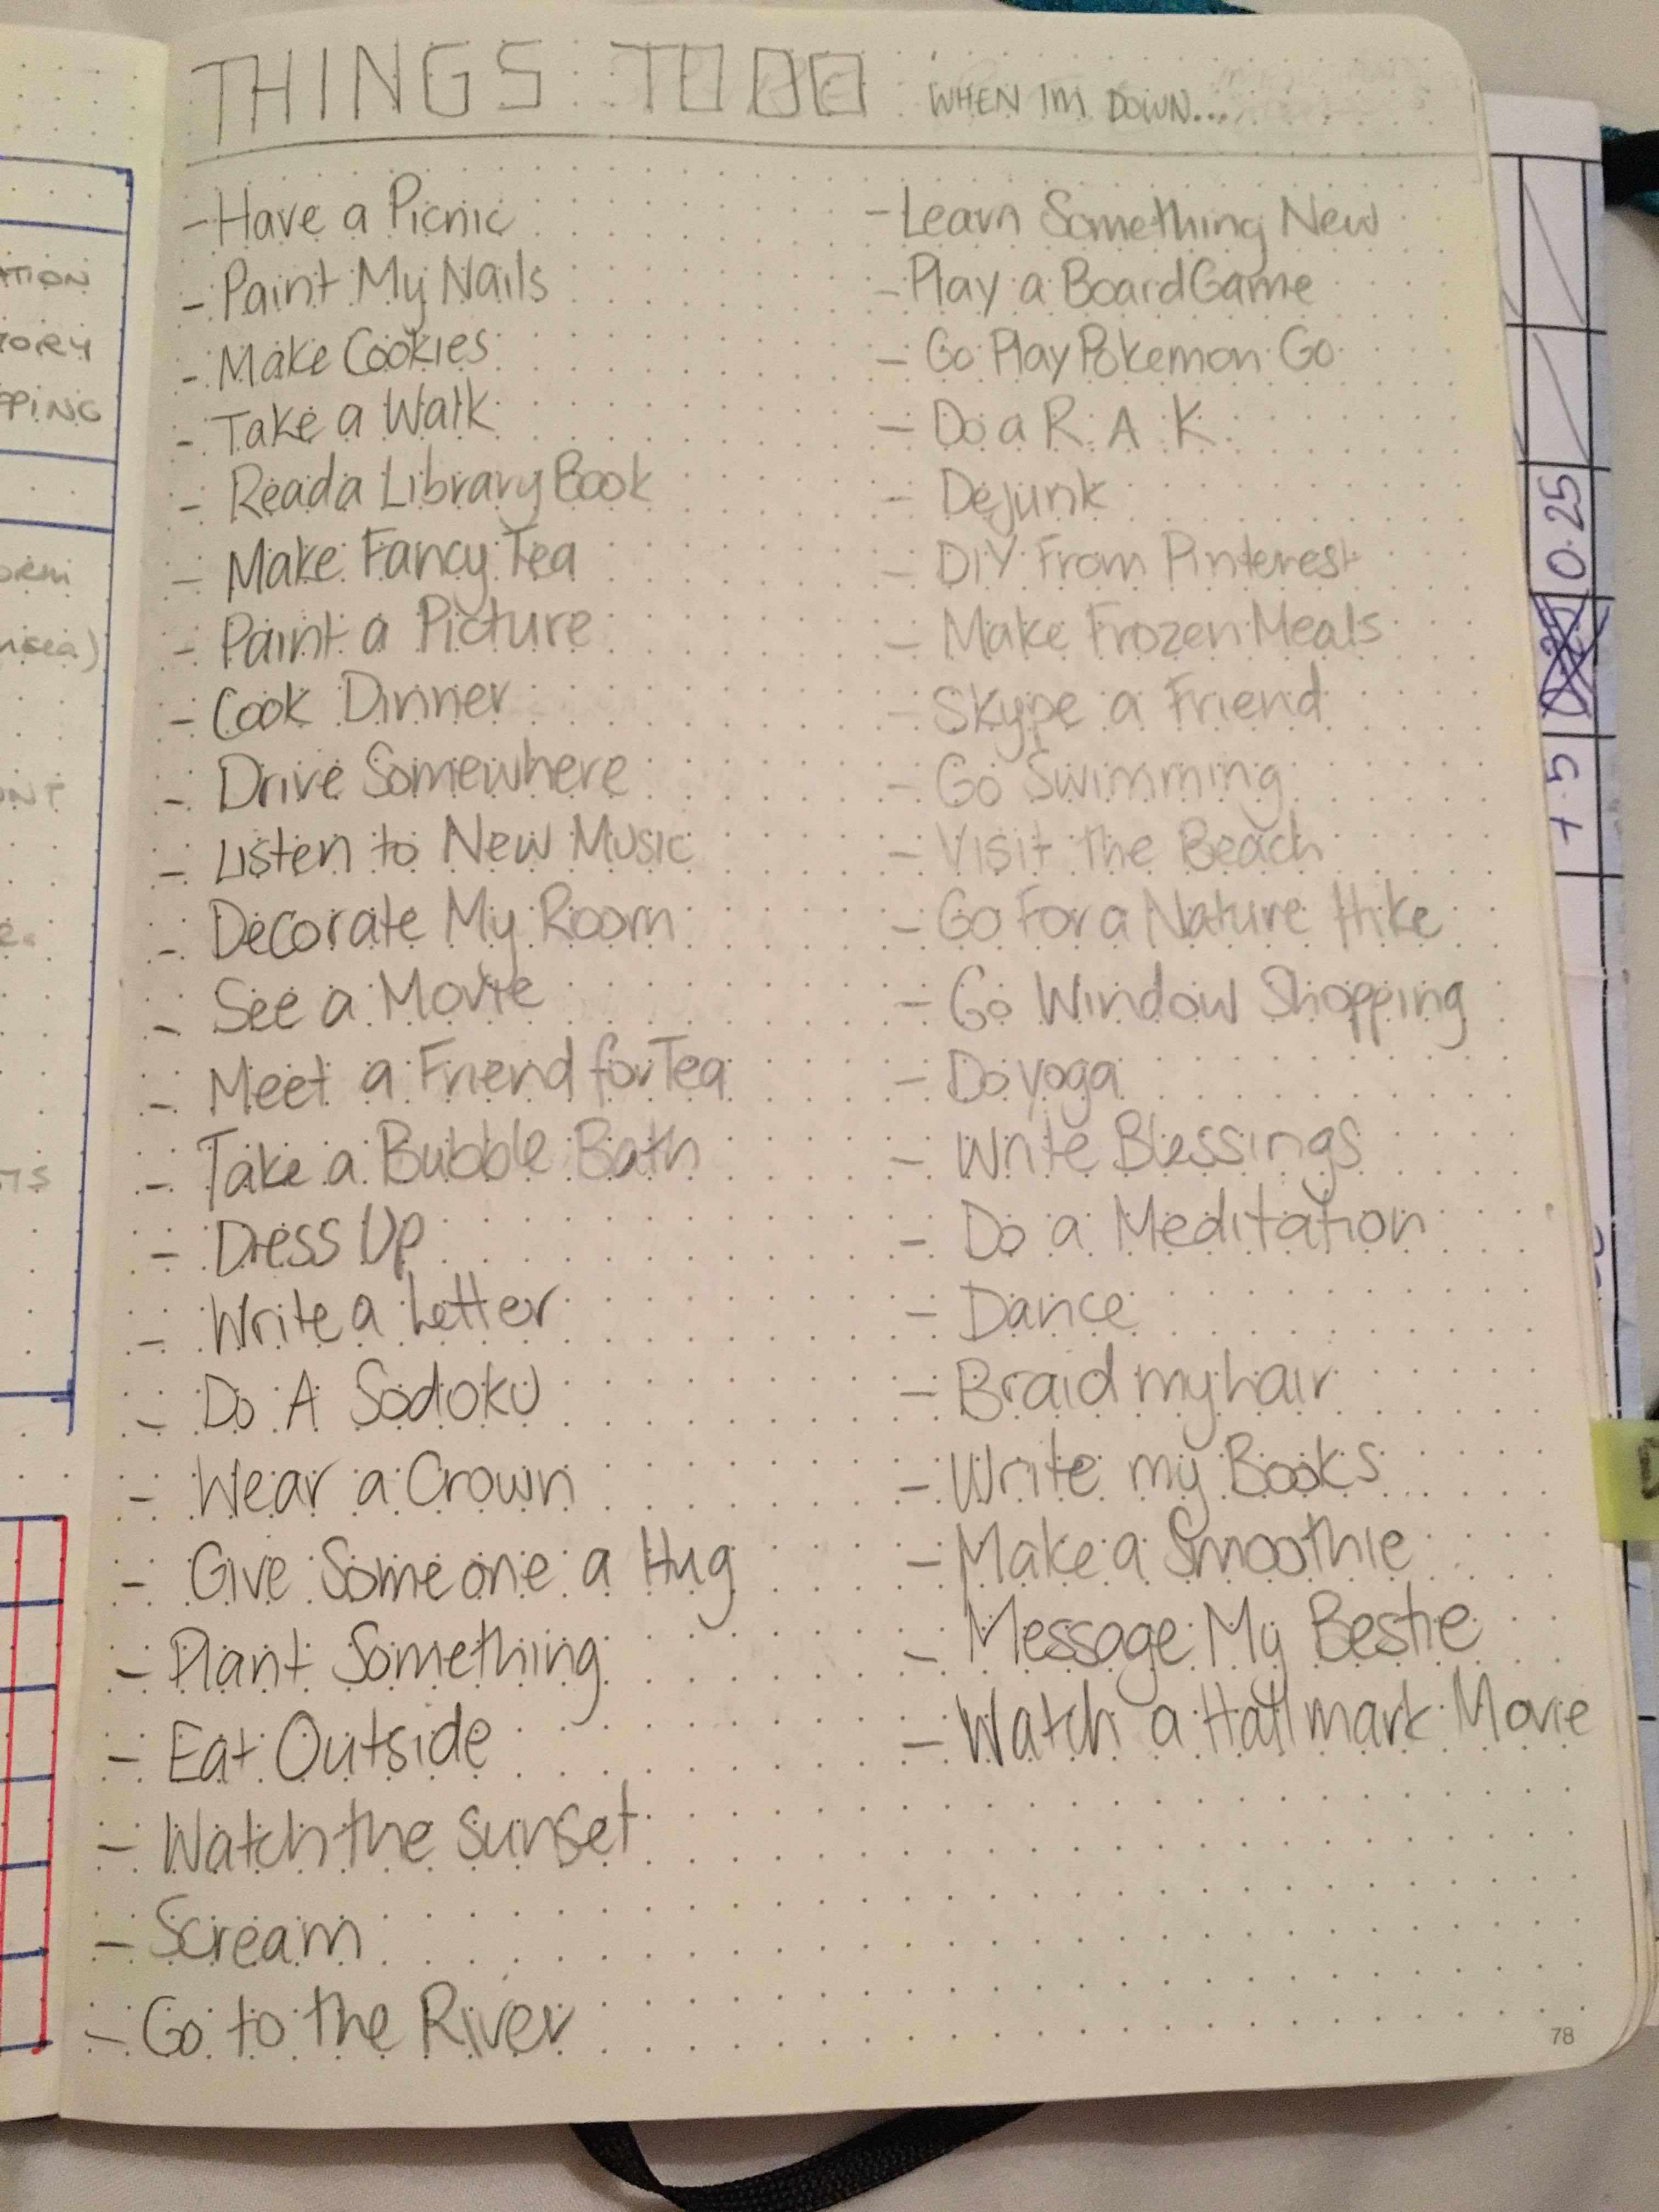 THINGS TO DO WHEN IM DOWN...
- Have a Picnic
- Paint My Nails
- Make Cookies
- Take a Walk
- Read a Library Book
- Make Fancy Tea
- Paint a Picture
- Cook Dinner
- Drive Somewhere
- Listen to New Music
- Decorate My Room
- See a Movie
- Meet a Friend for Tea
- Take a Bubble Bath
- Dress Up
- Write a Letter
- Do A Sodoku
- Wear a Crown
- Give Someone a Hug
- Plant Something
- Eat Outside
- Watch the Sunset
- Scream
- Go to the River
- Learn Something New
- Play a Board Game
- Go Play Pokemon Go
- Do a R.A.K.
- Dejunk
- DIY From Pinterest
- Make Frozen Meals
- Skype a Friend
- Go Swimming
- Visit the Beach
- Go For a Nature Hike
- Go Window Shopping
- Do yoga
- Write Blessings
- Do a Meditation
- Dance
- Braid my hair
- Write my Books
- Make a Smoothie
- Message My Bestie
- Watch a Hallmark Movie
78
0.25
7.5